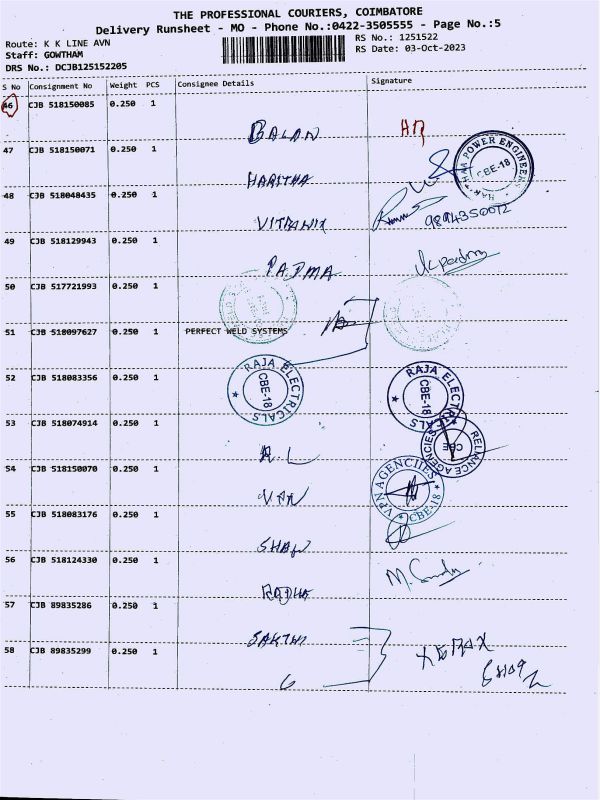 THE PROFESSIONAL COURIERS, COIMBATORE
Delivery Runsheet - MO - Phone No.:0422-3505555 - Page No.:5
Route: K K LINE AVN
RS No.: 1251522
Staff: GOWTHAM
RS Date: 03-Oct-2023
DRS No.: DCJB125152205
S No Consignment No Weight PCS Consignee Details Signature
46 CJB 518150085 0.250 1
BALAN
47 CJB 518150071 0.250 1
HARITHA
POWER ENGINEERS CBE-18
48 CJB 518048435 0.250 1
9894350072
49 CJB 518129943 0.250 1
PADMA
50 CJB 517721993 0.250 1
51 CJB 518097627 0.250 1 PERFECT WELD SYSTEMS
52 CJB 518083356 0.250 1
RAJA ELECTRICALS CBE-18
RAJA ELECTRICALS CBE-18
53 CJB 518074914 0.250 1
RELIANCE AGENCIES CBE
R.L
54 CJB 518150070 0.250 1
VPN
VPN AGENCIIES CBE-18
55 CJB 518083176 0.250 1
56 CJB 518124330 0.250 1
RADHA
57 CJB 89835286 0.250 1
SAKTHI
58 CJB 89835299 0.250 1